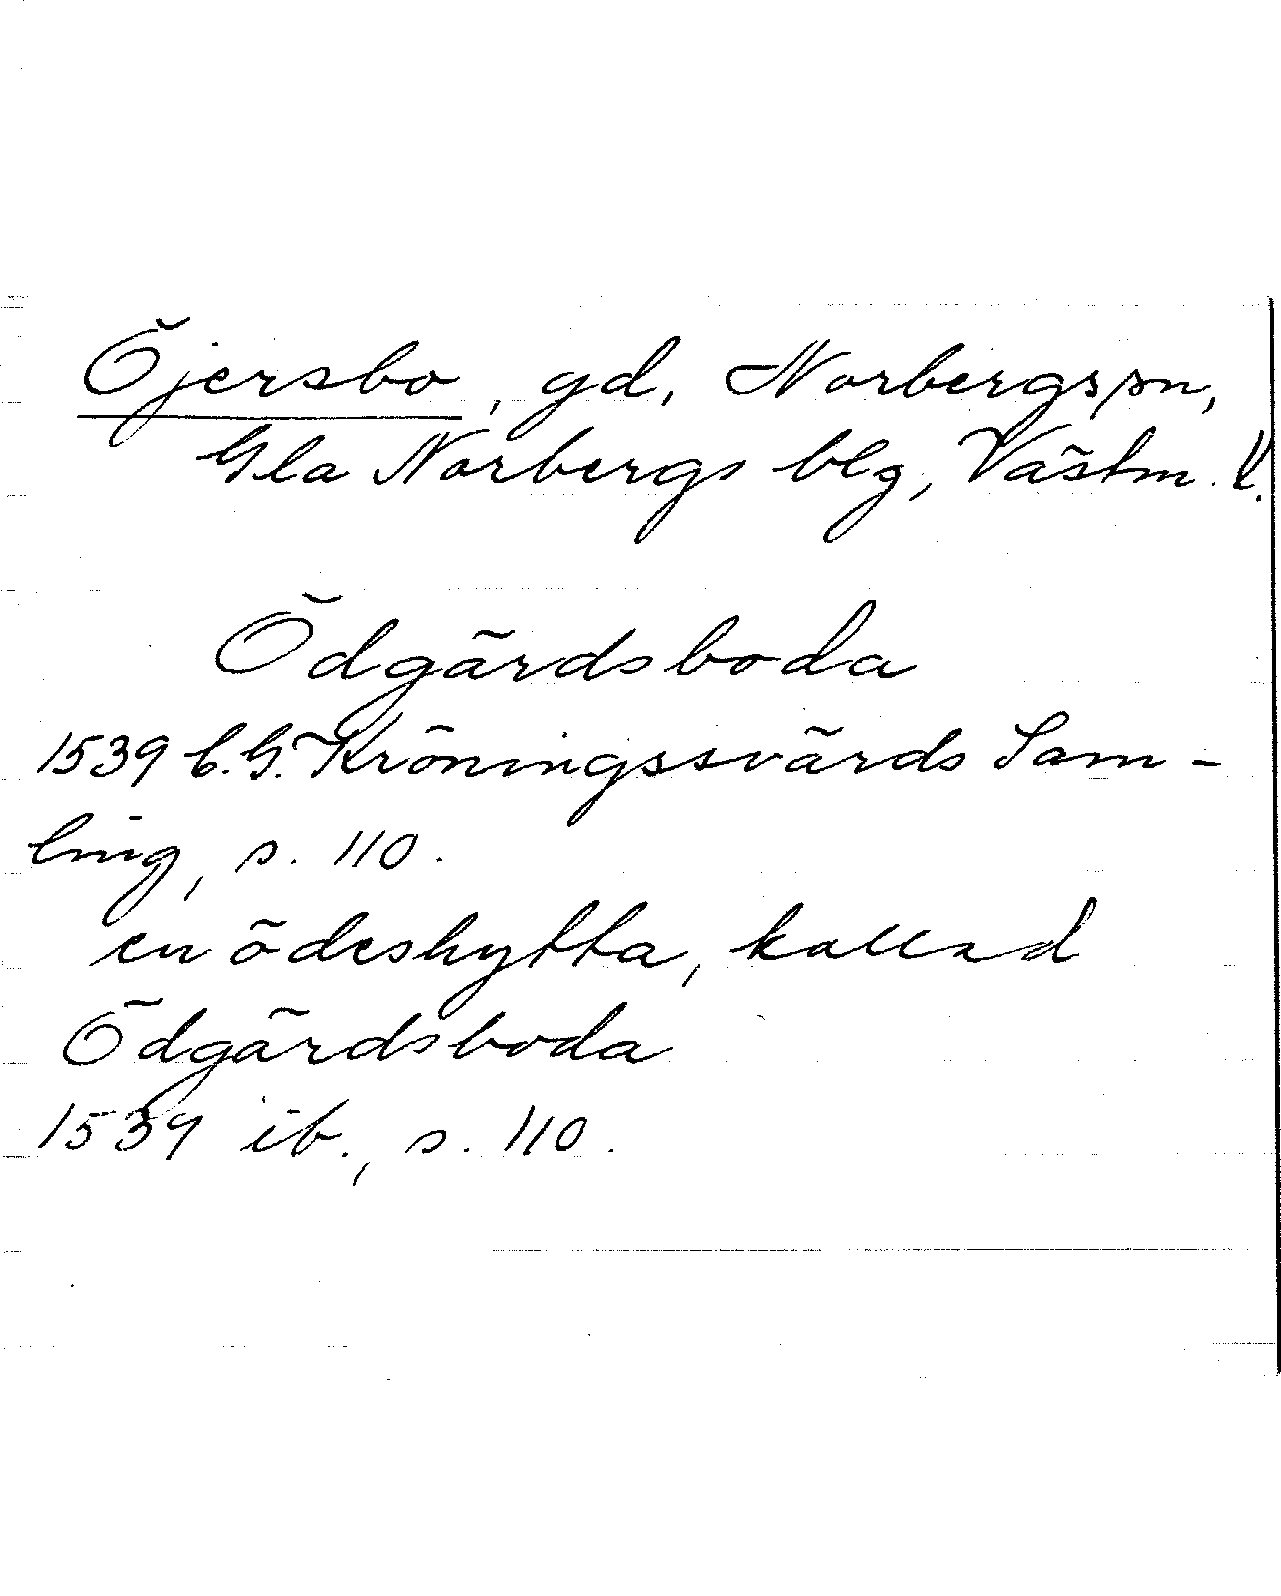 Öjersbo, gd, Norbergs sn,
Gla Norbergs blg, Västm. l.
Ödgärdsboda
1539 C.G. Kröningssvärds Sam-
ling, s. 110.
en ödeshytta, kallad
Ödgärdsboda
1539 ib., s. 110.